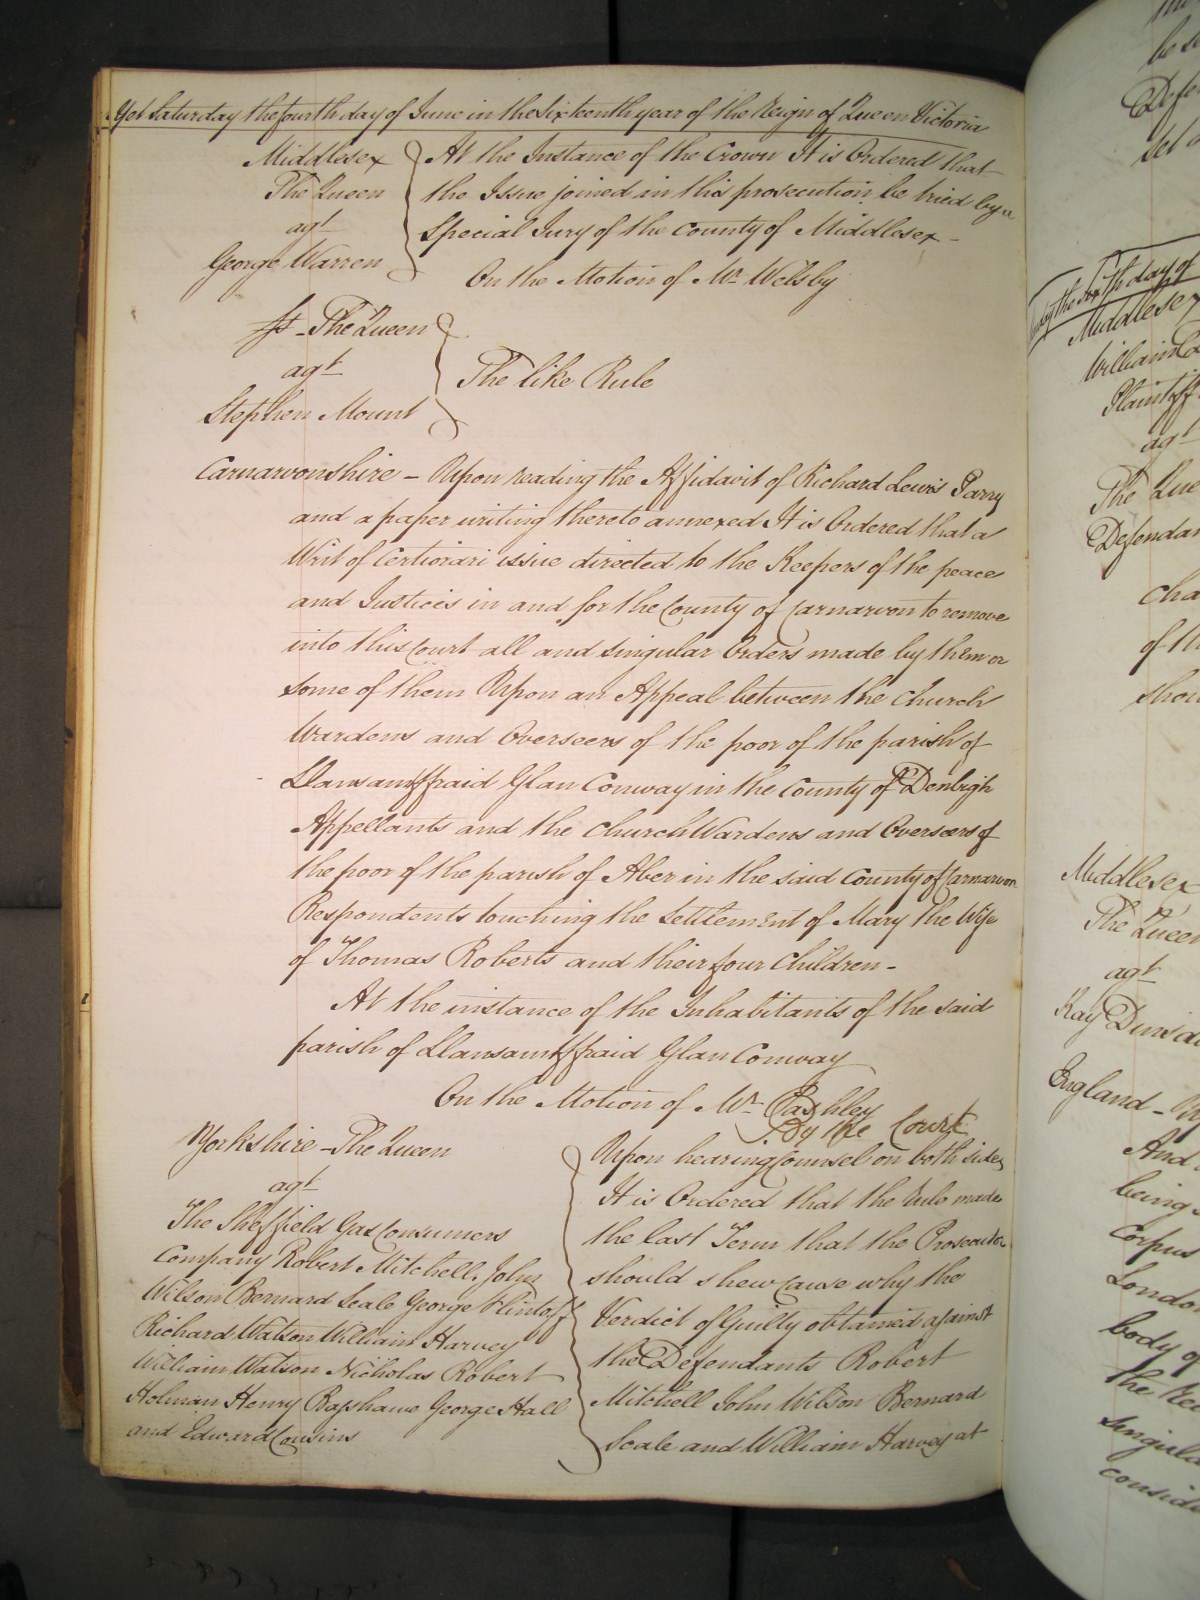 Yet Saturday the fourth day of June in the Sixteenth year of the Reign of Queen Victoria
Middlesex
The Queen
agt
George Warren
At the Instance of the Crown It is Ordered that
the Issue joined in this prosecution be tried by a
Special Jury of the County of Middlesex -
On the Motion of Mr Welsby
St - The Queen
agt
Stephen Mount
The like Rule
Carnarvonshire - Upon reading the Affidavit of Richard Lewis Parry
and a paper writing thereto annexed It is Ordered that a
Writ of Certiorari issue directed to the Keepers of the peace
and Justices in and for the County of Carnarvon to remove
into this Court all and singular Orders made by them or
some of them Upon an Appeal between the Church
Wardens and Overseers of the poor of the parish of
Llansantffraid Glan Conway in the County of Denbigh
Appellants and the Church Wardens and Overseers of
the poor of the parish of Aber in the said County of Carnarvon
Respondents touching the Settlement of Mary the Wife
of Thomas Roberts and their four Children -
At the instance of the Inhabitants of the said
parish of Llansantffraid Glan Conway
On the Motion of Mr Pashley
By the Court
Yorkshire - The Queen
agt
The Sheffield Gas Consumers
Company Robert Mitchell, John
Wilson Bernard Seale George Flintoff
Richard Watson William Harvey
William Watson Nicholas Robert
Holman Henry Bagshawe George Hall
and Edward Cousins
Upon hearing Counsel on both sides
It is Ordered that the Rule made
the last Term that the Prosecutor
should shew cause why the
Verdict of Guilty obtained against
the Defendants Robert
Mitchell John Wilson Bernard
Seale and William Harvey at
be
Defen
day the Sixth day of
Middlesex
William
Plaintiff
agt
The Que
Defendan
cha
of th
shou
Middlesex
The Queen
agt
Kay Dinsda
England -
And
being
Corpus
London
body of
the
singula
conside